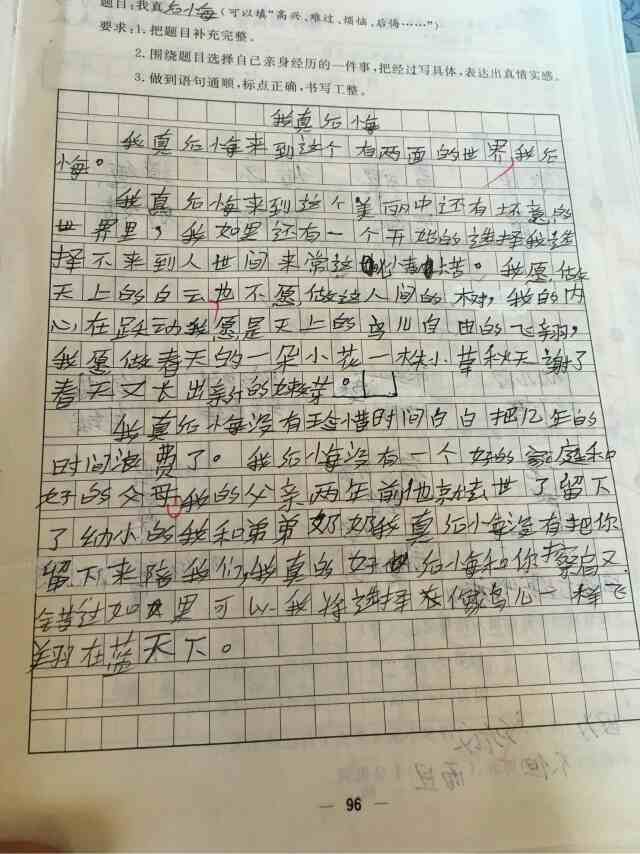 题目:我真后悔(可以填“高兴、难过、烦恼、后悔……”)
要求:1.把题目补充完整。
2.围绕题目选择自己亲身经历的一件事,把经过写具体,表达出真情实感。
3.做到语句通顺,标点正确,书写工整。
我真后悔
我真后悔来到这个有两面的世界,我后
悔。
我真后悔来到这个美丽中还有坏意的
世界里,我如果还有一个开始的选择我选
择不来到人世间来常这苦。我愿做
天上的白云,也不愿做这人间的树,我的内
心在跃动我愿是天上的鸟儿自由的飞翔,
我愿做春天的一朵小花一株小草秋天谢了
春天又长出新的嫩芽。
我真后悔没有珍惜时间白白把几年的
时间浪费了。我后悔没有一个好的家庭和
好的父母,我的父亲两年前他就去世了留下
了幼小的我和弟弟奶奶我真后悔没有把你
留下来陪我们,我真的好后悔和你
会苦过如果可以我将选择像鸟儿一样飞
翔在蓝天下。
96